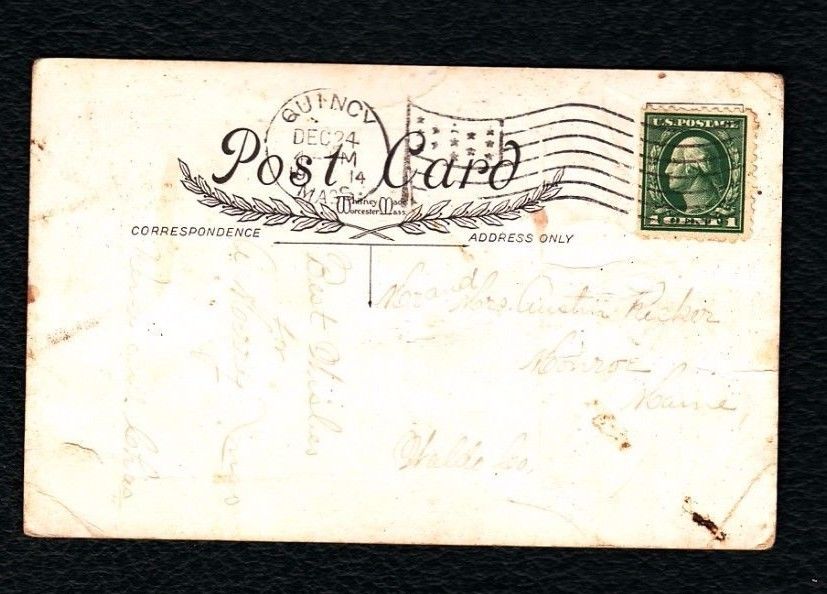 QUINCY
DEC 24
M
14
MASS.
U.S. POSTAGE
1 CENT 1
Post Card
Whitney Made
Worcester Mass.
CORRESPONDENCE
ADDRESS ONLY
Best Wishes
for
a Merry Xmas
Mr and Mrs. Austin
Monroe
Maine,
Waldo Co.